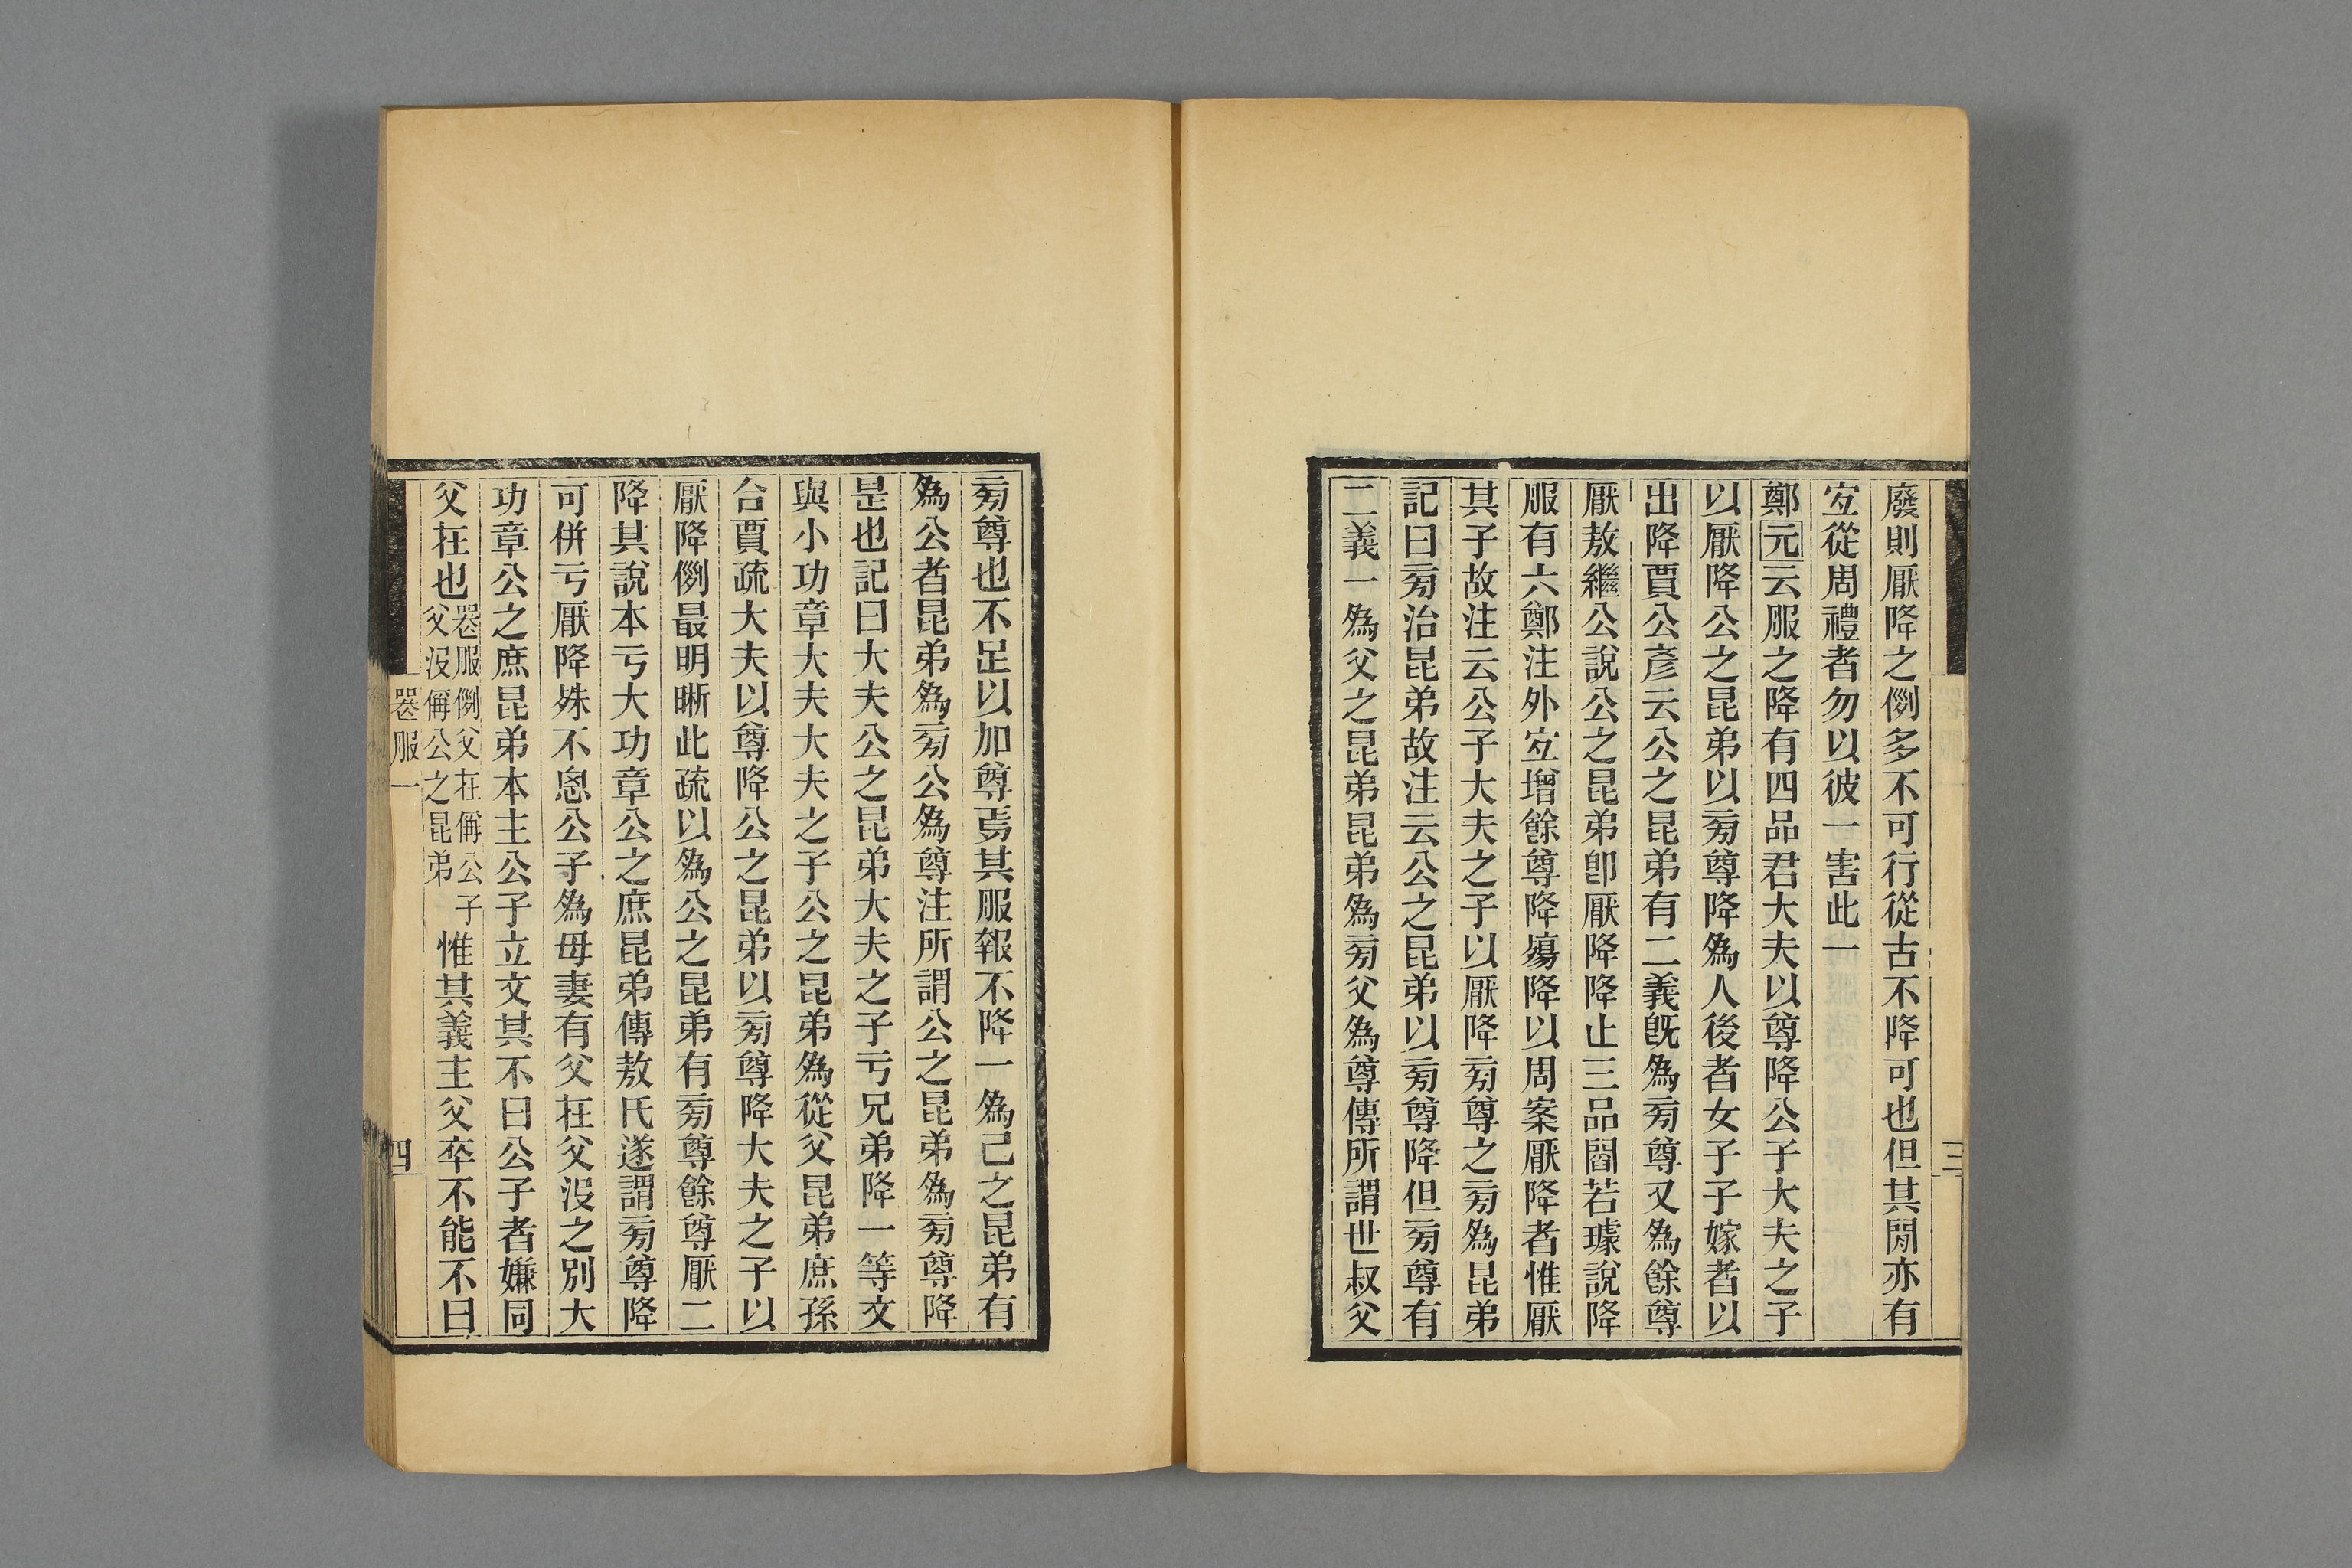 廢則厭降之例多不可行從古不降可也但其閒亦有
宐從周禮者勿以彼一害此一
鄭元云服之降有四品君大夫以尊降公子大夫之子
以厭降公之昆弟以㫄尊降爲人後者女子子嫁者以
出降賈公彥云公之昆弟有二義旣爲㫄尊又爲餘尊
厭敖繼公說公之昆弟卽厭降降止三品閻若璩說降
服有六鄭注外宐增餘尊降殤降以周案厭降者惟厭
其子故注云公子大夫之子以厭降㫄尊之㫄爲昆弟
記曰㫄治昆弟故注云公之昆弟以㫄尊降但㫄尊有
二義一爲父之昆弟昆弟爲㫄父爲尊傳所謂世叔父
三
㫄尊也不足以加尊焉其服報不降一爲己之昆弟有
爲公者昆弟爲㫄公爲尊注所謂公之昆弟爲㫄尊降
是也記曰大夫公之昆弟大夫之子亏兄弟降一等文
與小功章大夫大夫之子公之昆弟爲從父昆弟庶孫
合賈疏大夫以尊降公之昆弟以㫄尊降大夫之子以
厭降例最明晰此疏以爲公之昆弟有㫄尊餘尊厭二
降其說本亏大功章公之庶昆弟傳敖氏遂謂㫄尊降
可併亏厭降殊不悤公子爲母妻有父在父沒之別大
功章公之庶昆弟本主公子立文其不曰公子者嫌同
父在也喪服例父在偁公子父沒偁公之昆弟惟其義主父卒不能不曰
喪服一
四